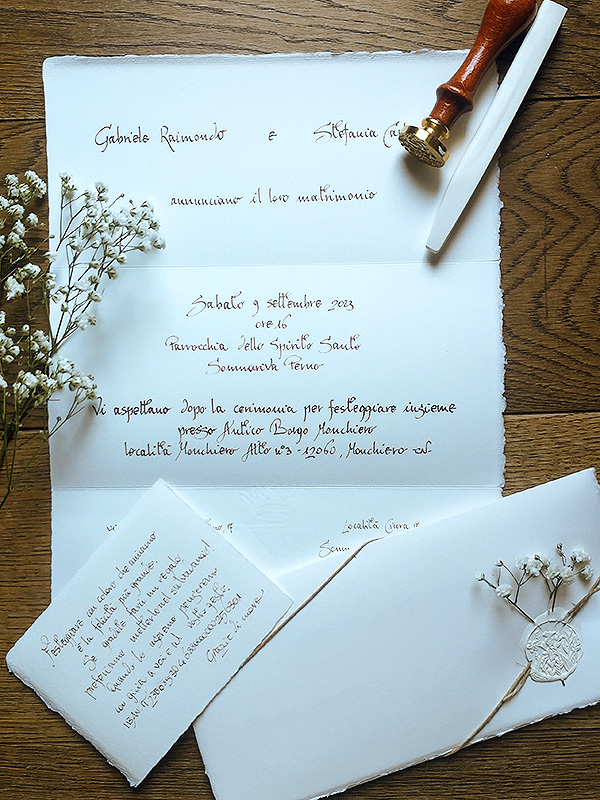 Gabriele Raimondo e Stefania
annunciano il loro matrimonio
Sabato 9 settembre 2023
ore 16
Parrocchia dello Spirito Santo
Sommariva Perno
Vi aspettano dopo la cerimonia per festeggiare insieme
presso Antico Borgo Monchiero
Località Monchiero Alto n°3 - 12060, Monchiero CN
Località
Festeggiare con coloro che amiamo
è la felicità più grande.
Se gradite farci un regalo
preferiamo metterlo nel salvadanaio!
Quando lo useremo penseremo
con gioia a voi e al vostro gesto
Grazie di cuore